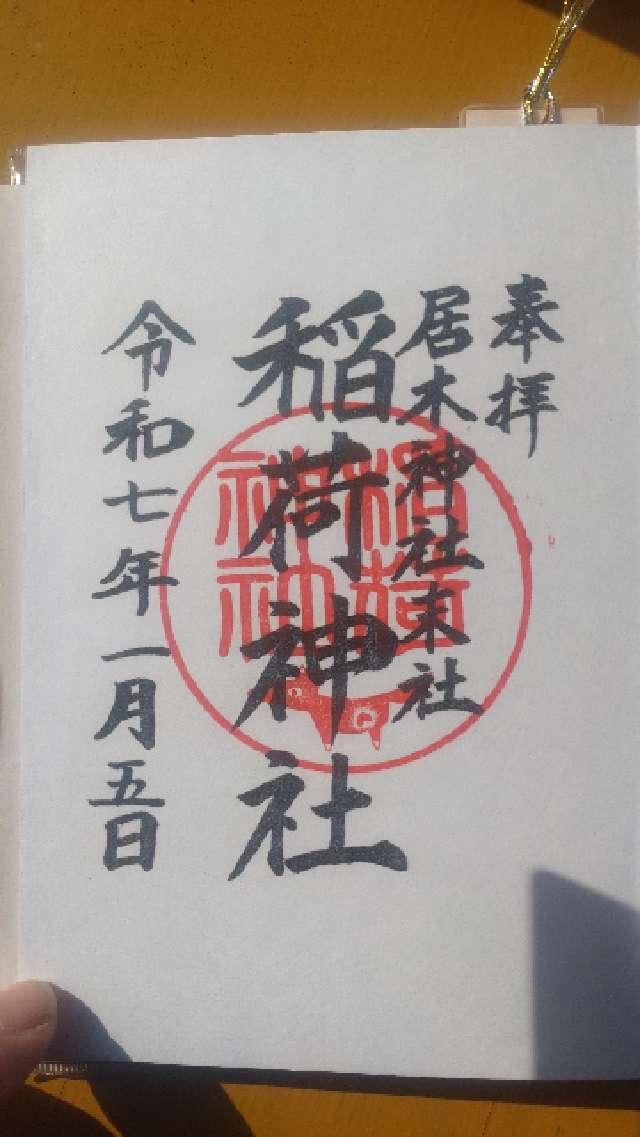 奉拝
居木神社末社
稲荷神社
令和七年一月五日